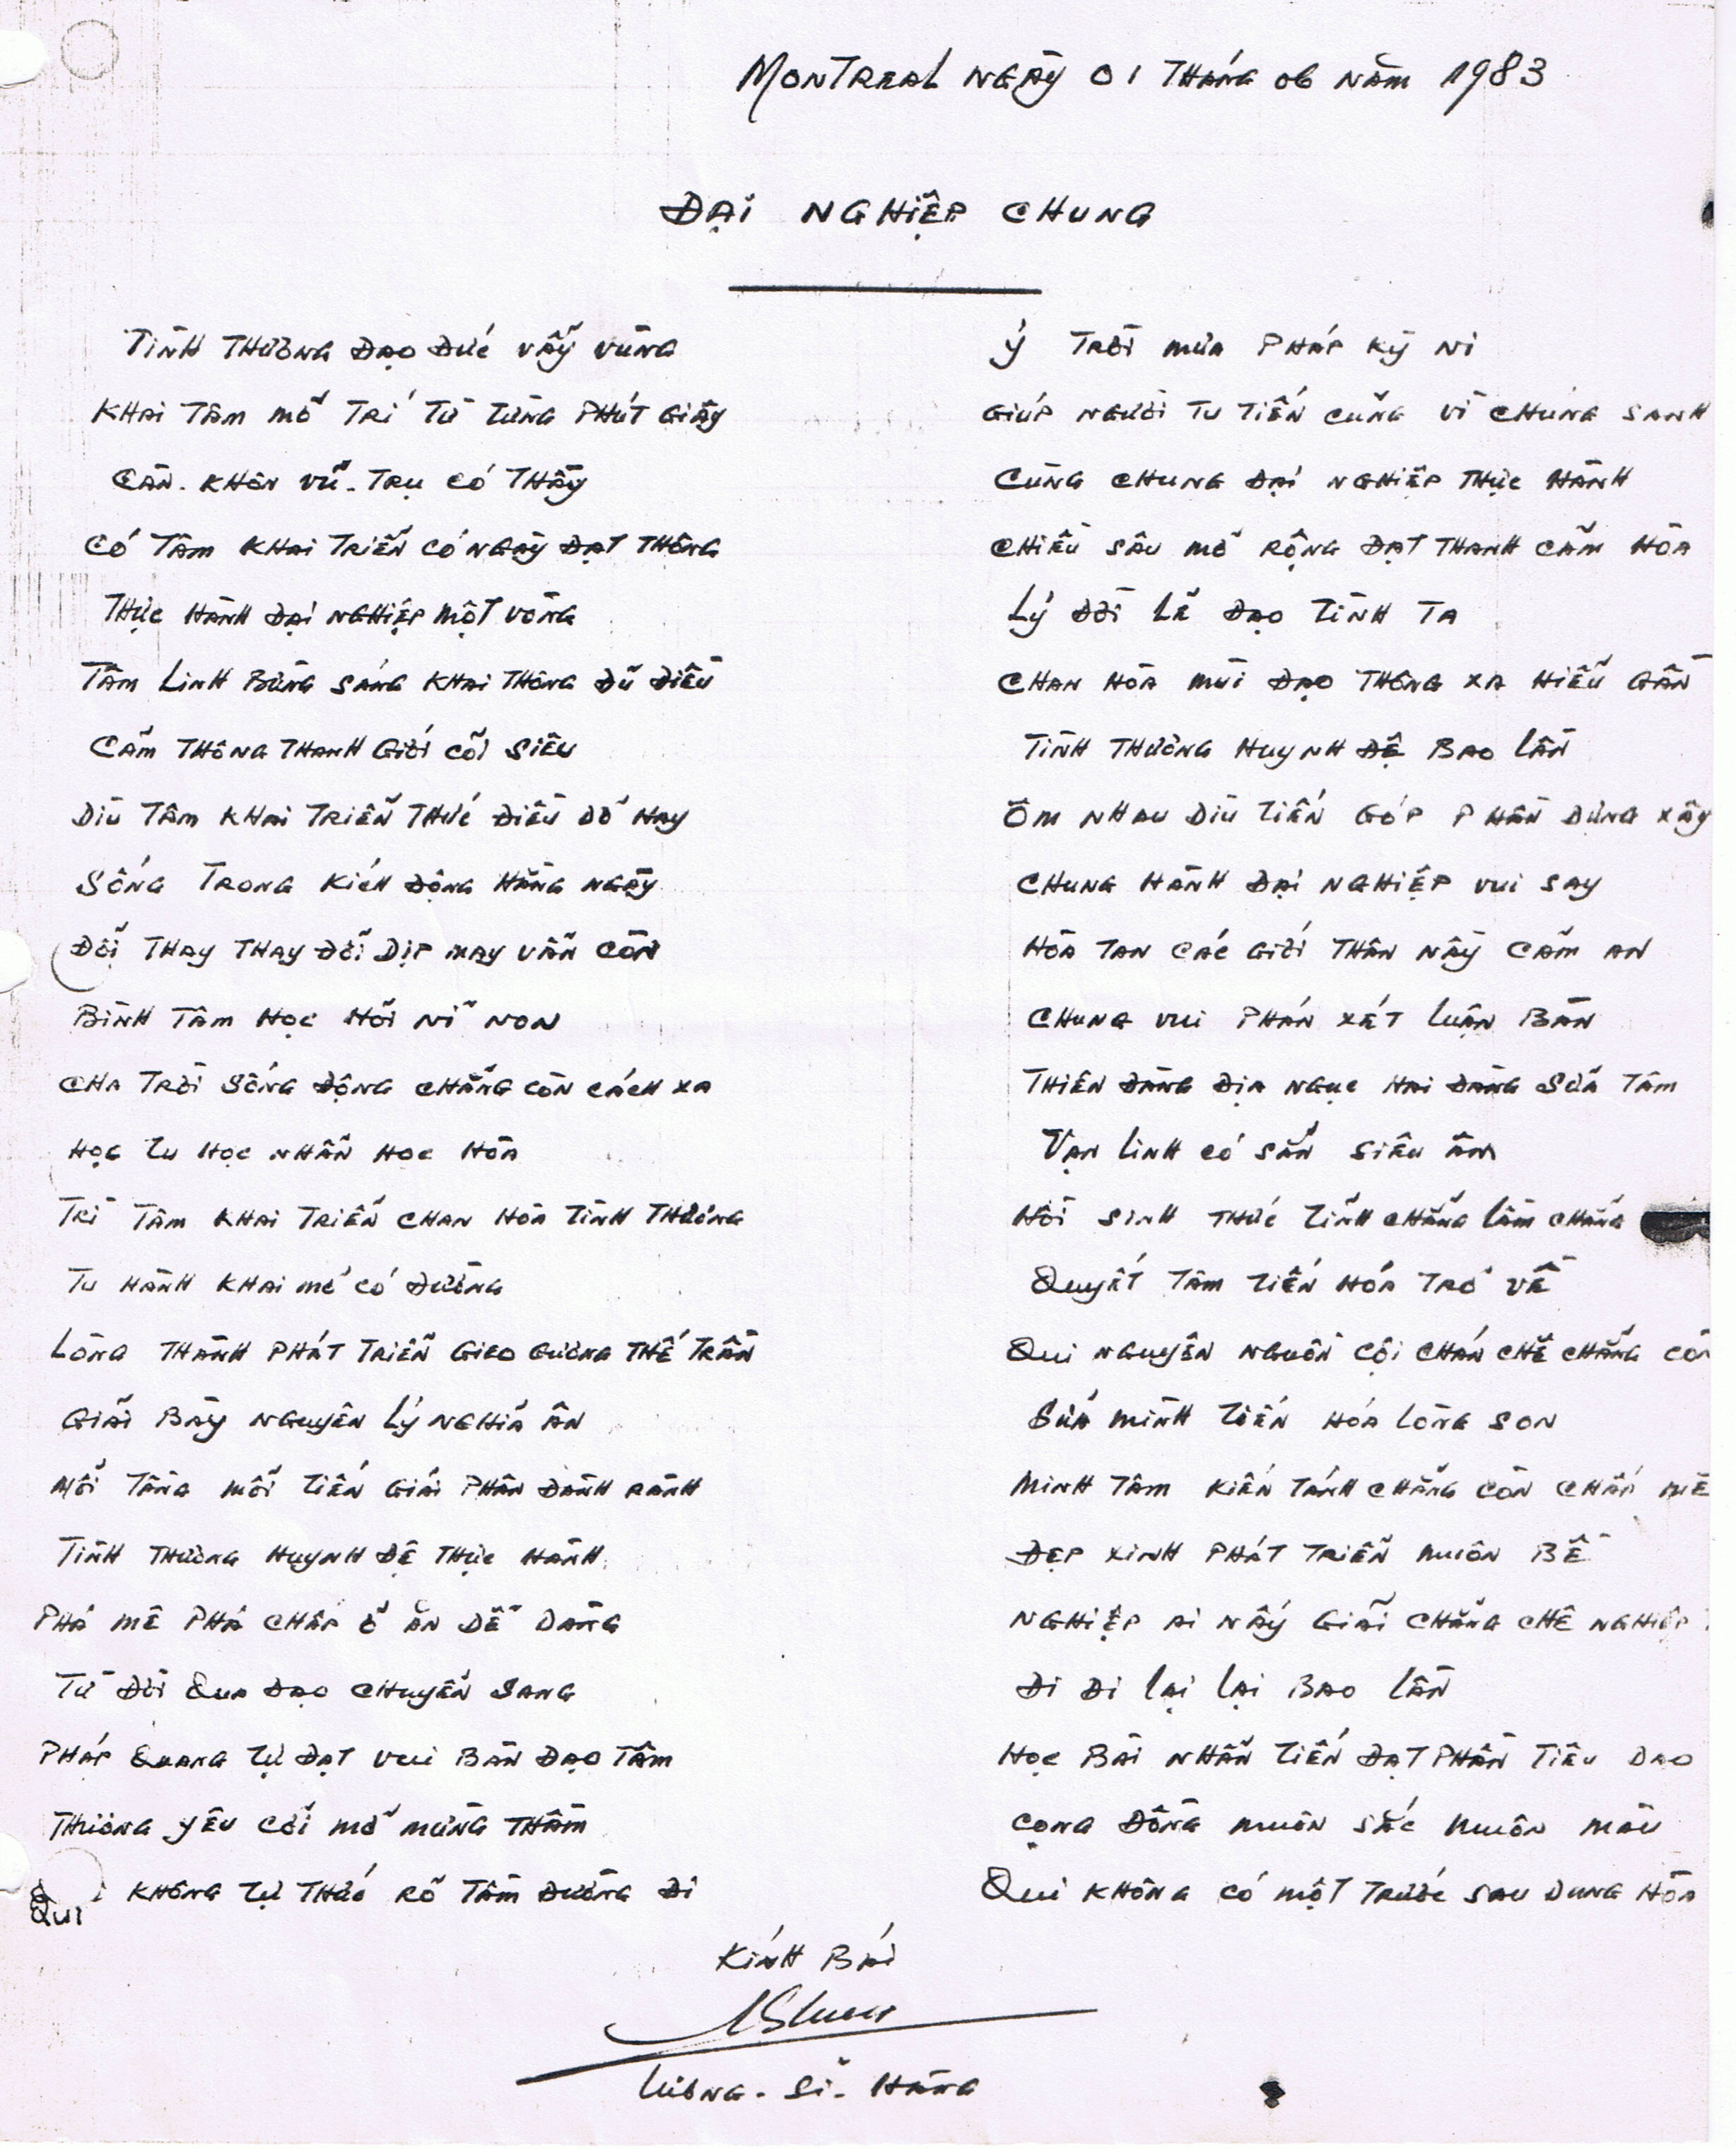 MONTREAL NGÀY 01 THÁNG 06 NĂM 1983
ĐẠI NGHIỆP CHUNG
TÌNH THƯƠNG ĐẠO ĐỨC VẪY VÙNG
KHAI TÂM MỞ TRÍ TỪ TỪNG PHÚT GIÂY
CÀN. KHÔN VŨ. TRỤ CÓ THẦY
CÓ TÂM KHAI TRIỂN CÓ NGÀY ĐẠT THÔNG
THỰC HÀNH ĐẠI NGHIỆP MỘT VÒNG
TÂM LINH BỪNG SÁNG KHAI THÔNG ĐỦ ĐIỀU
CẢM THÔNG THANH GIỚI CÕI SIÊU
DÌU TÂM KHAI TRIỂN THỨC ĐIỀU DỞ HAY
SỐNG TRONG KÍCH ĐỘNG HẰNG NGÀY
ĐỔI THAY THAY ĐỔI DỊP MAY VẪN CÒN
BÌNH TÂM HỌC HỎI NỈ NON
CHA TRỜI SỐNG ĐỘNG CHẲNG CÒN CÁCH XA
HỌC TU HỌC NHẪN HỌC HÒA
TRÍ TÂM KHAI TRIỂN CHAN HÒA TÌNH THƯƠNG
TU HÀNH KHAI MỞ CÓ ĐƯỜNG
LÒNG THÀNH PHÁT TRIỂN GIEO GƯƠNG THẾ TRẦN
GIẢI BÀY NGUYÊN LÝ NGHĨA ÂN
MỖI TẦNG MỖI TIẾN GIẢI PHÂN ĐÀNH RÀNH
TÌNH THƯƠNG HUYNH ĐỆ THỰC HÀNH
PHÁ MÊ PHÁ CHẤP Ở ĂN DỄ DÀNG
TỪ ĐỜI QUA ĐẠO CHUYỂN SANG
PHÁP QUANG TỰ ĐẠT VUI BÀN ĐẠO TÂM
THƯƠNG YÊU CỞI MỞ MỪNG THẦM
QUI KHÔNG TỰ THỨC RÕ TẦM ĐƯỜNG ĐI
Ý TRỜI MƯA PHÁP KỲ NI
GIÚP NGƯỜI TU TIẾN CŨNG VÌ CHÚNG SANH
CÙNG CHUNG ĐẠI NGHIỆP THỰC HÀNH
CHIỀU SÂU MỞ RỘNG ĐẠT THANH CẢM HÒA
LÝ ĐỜI LẼ ĐẠO TÌNH TA
CHAN HÒA MÙI ĐẠO THÔNG XA HIỂU GẦN
TÌNH THƯƠNG HUYNH ĐỆ BAO LẦN
ÔM NHAU DÌU TIẾN GÓP PHẦN DỰNG XÂY
CHUNG HÀNH ĐẠI NGHIỆP VUI SAY
HÒA TAN CÁC GIỚI THÂN NẦY CẢM AN
CHUNG VUI PHÁN XÉT LUẬN BÀN
THIÊN ĐÀNG ĐỊA NGỤC HAI ĐÀNG SỬA TÂM
VẠN LINH CÓ SẴN SIÊU ÂM
HỒI SINH THỨC TỈNH CHẲNG LẦM CHẲNG
QUYẾT TÂM TIẾN HÓA TRỞ VỀ
QUI NGUYÊN NGUỒN CỘI CHÁN CHÊ CHẲNG CÒN
SỬA MÌNH TIẾN HÓA LÒNG SON
MINH TÂM KIẾN TÁNH CHẲNG CÒN CHẤP MÊ
ĐẸP XINH PHÁT TRIỂN MUÔN BỀ
NGHIỆP AI NẤY GIẢI CHẲNG CHÊ NGHIỆP
ĐI ĐI LẠI LẠI BAO LẦN
HỌC BÀI NHẪN TIẾN ĐẠT PHẦN TIÊU DAO
CỌNG ĐỒNG MUÔN SẮC MUÔN MÀU
QUI KHÔNG CÓ MỘT TRƯỚC SAU DUNG HÒA
KÍNH BÁI
LƯƠNG. SĨ. HẰNG